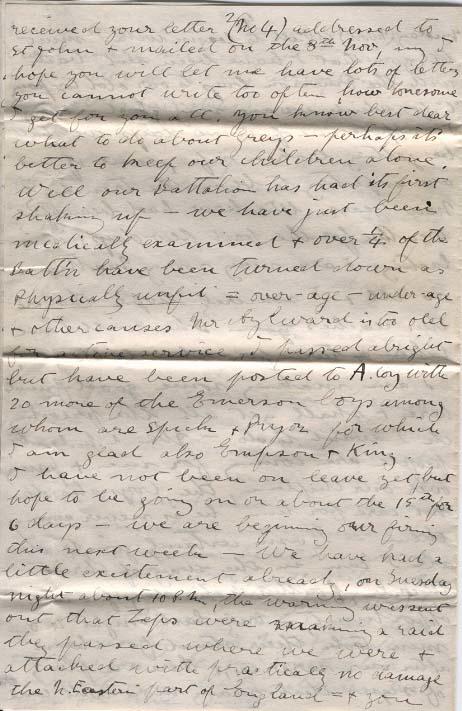 received your letter (No 4) addressed to
St John & mailed on the 8th Nov, my I
hope you will let me have lots of letters
you cannot write too often how lonesome
I get for you all. You know best dear
what to do about Greys – perhaps its
better to keep our children alone.
Well our Battalion has had its first
shaking up – we have just been
medically examined & over 1/4 of the
Battn have been turned down as
physically unfit = over-age – under-age
& other causes Mr Aylward is too old
for active service, I passed alright
but have been posted to A. Coy with
20 more of the Emerson boys among
whom are Spich & Pryor for which
I am glad also Empson & King.
I have not been on leave yet, but
hope to be going on or about the 15th for
6 days – we are beginning our firing
this next week – We have had a
little excitement already, on Tuesday
night about 10 P.M, the warning was sent
out that Zeps were making a raid
they passed where we were &
attacked with practically no damage
the N. Eastern part of England = & you